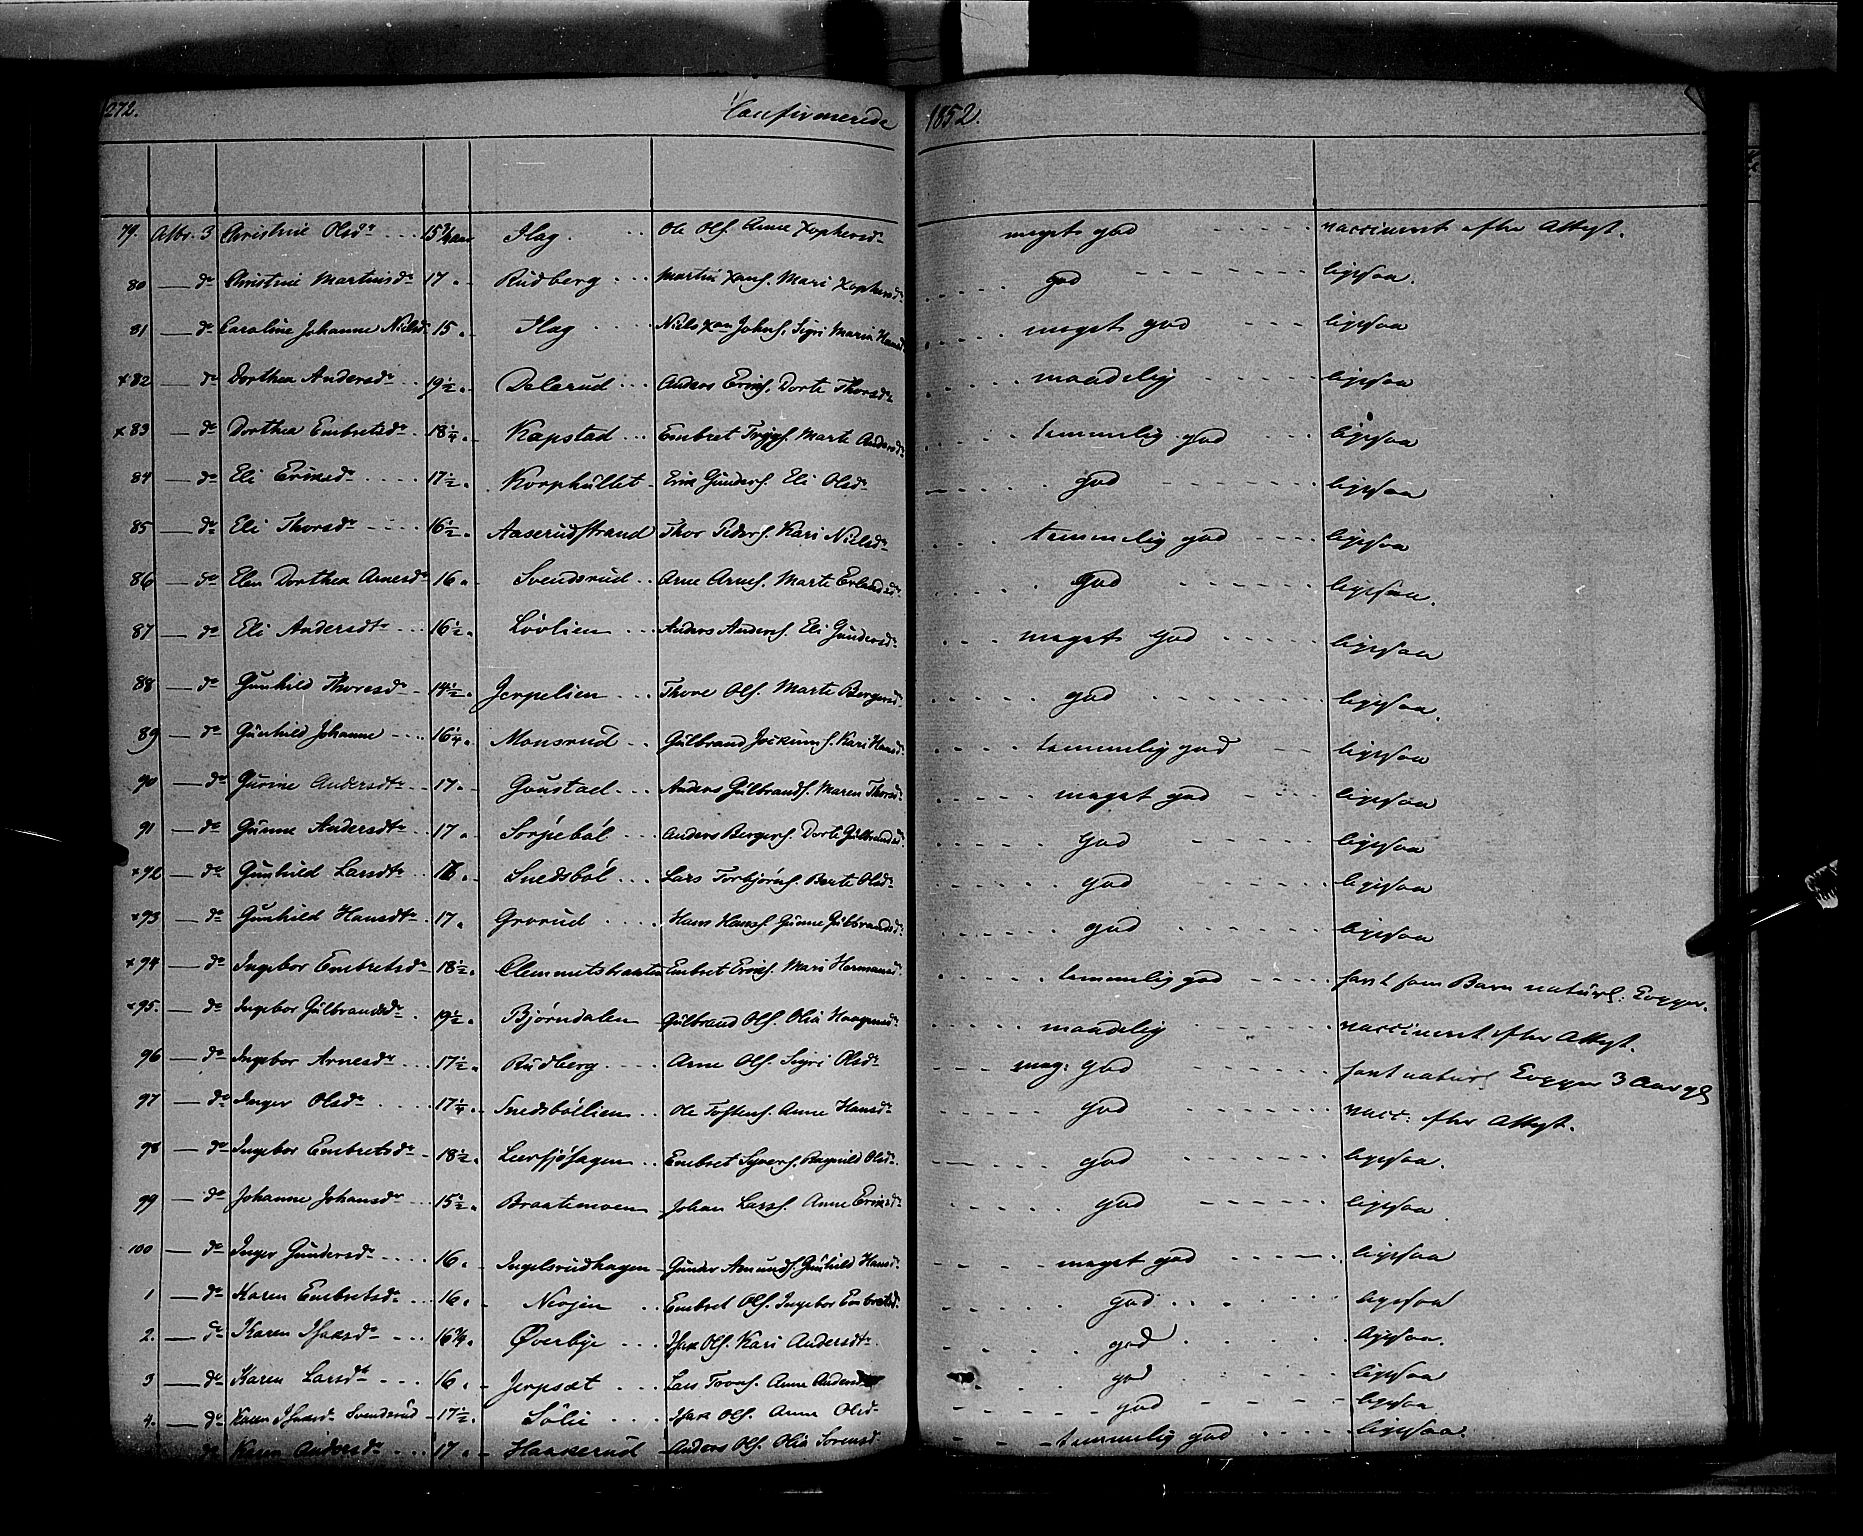 272. Confirmerede 1852.
79. Octbr. 3 Christine Olsdr 15 3/4 Aar Hag. Ole Ols. Anne Xophersdr meget god vaccineret efter Attest.
80 — do Christine Martinsdr 17 „ Rudberg Martin Xans. Mari Xophersdr god ligesaa.
81 — do Caroline Johanne Nielsdr 15 „ Hag Niels Xan Johns. Sigri Marie Hansdr meget god ligesaa
x 82 — do Dorthea Andersdr 19 1/2 „ Dalerud Anders Erichs. Dorte Thorsdr maadelig ligesaa
x 83 — do Dorthea Embretsdr 18 1/4 „ Kapstad Embret Trygs. Marte Andersdr temmelig god ligesaa
84 — do Eli Eriksdr 17 1/2 „ Korphullet Erik Gunders. Eli Olsdr god ligesaa
85 — do Eli Thorsdr 16 1/2 „ Aaserudstrand Thor Peders. Kari Nielsdr temmelig god ligesaa
86 — do Elen Dorthea Arnesdr 16 „ Svendsrud Arne Arnes. Marte Erlandsdr god ligesaa.
87 — do Eli Andersdtr 16 1/2 „ Løvlien Anders Anders. Eli Gundersdr meget god ligesaa
88 — do Gunhild Thoresdr 14 1/2 „ Jerpelien Thore Ols. Marte Bergersdr god ligesaa.
89 — do Gunhild Johanne 16 1/4 „ Monsrud Gulbrand Jockums. Kari Hansdr temmelig god ligesaa
90 — do Gurine Andersdtr 17 „ Goustad Anders Gulbrands. Maren Thorsdr meget god ligesaa
91 — do Gunne Andersdtr 17 „ Sorpebøl Anders Bergers. Dorte Gulbrandsdr god ligesaa
x 92 — do Gunhild Larsdtr Snedsbøl Lars Torbjørns. Berte Olsdr god ligesaa
x 93 — do Gunhild Hansdtr 17 „ Grorud Hans Hans. Gunne Gulbrandsdr god ligesaa
x 94 — do Ingebor Embretsdr 18 1/2 „ Clemmetsbraaten Embret Erichs. Mari Hermansdr temmelig god havt som Barn naturl. Kopper.
x 95. — do Ingebor Gulbrandsdr 19 1/2 „ Bjørndalen Gulbrand Ols. Olia Haagensdr maadelig vaccineret efter Attest.
96 — do Ingebor Arnesdr 17 1/2 „ Rudberg Arne Ols. Sigri Olsdr meg: god havt naturl Kopper 3 Aar gl
97 — do Inger Olsdr 17 1/4 „ Snedsbøllien Ole Tostens. Anne Hansdr god vacc: efter Attest.
98 — do Ingebor Embretsdr 18 1/2 „ Leersjøhagen Embret Syvers. Ragnild Olsdr god ligesaa.
99 — do Johanne Johansdr 15 1/2 „ Braatemoen Johan Lars. Anne Eriksdr god ligesaa
100 — do Inger Gundersdr 16 „ Ingelsrudhagen Gunder Amunds. Gunhild Hansdr meget god ligesaa
1 — do Karen Embretsdr 16 „ Embret Ols. Ingebor Embretsdr god ligesaa
2. — do Karen Isaksdr 16 3/4 „ Øverbye Isak Ols. Kari Andersdtr god ligesaa.
3 — do Karen Larsdtr 16 „ Jerpsæt Lars Tovs. Anne Andersdr god ligesaa
4. — do Karen Isaksdr Svendsrud 17 1/2 „ Sølie Isak Ols. Anne Olsdr god ligesaa
do Karen Andersdr 17 „ Haakerud Anders Ols. Olia Sørensdr temmelig god ligesaa.